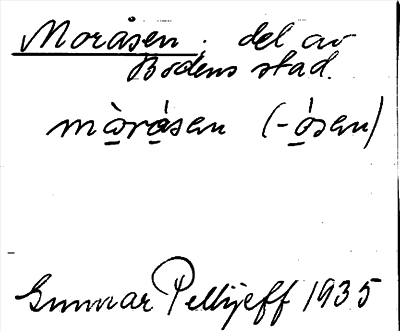 Moråsen, del av
Bodens stad.
mo̠̊̀ro̠̊́sen (-o̠̊́sen)
Gunnar Pellijeff 1935